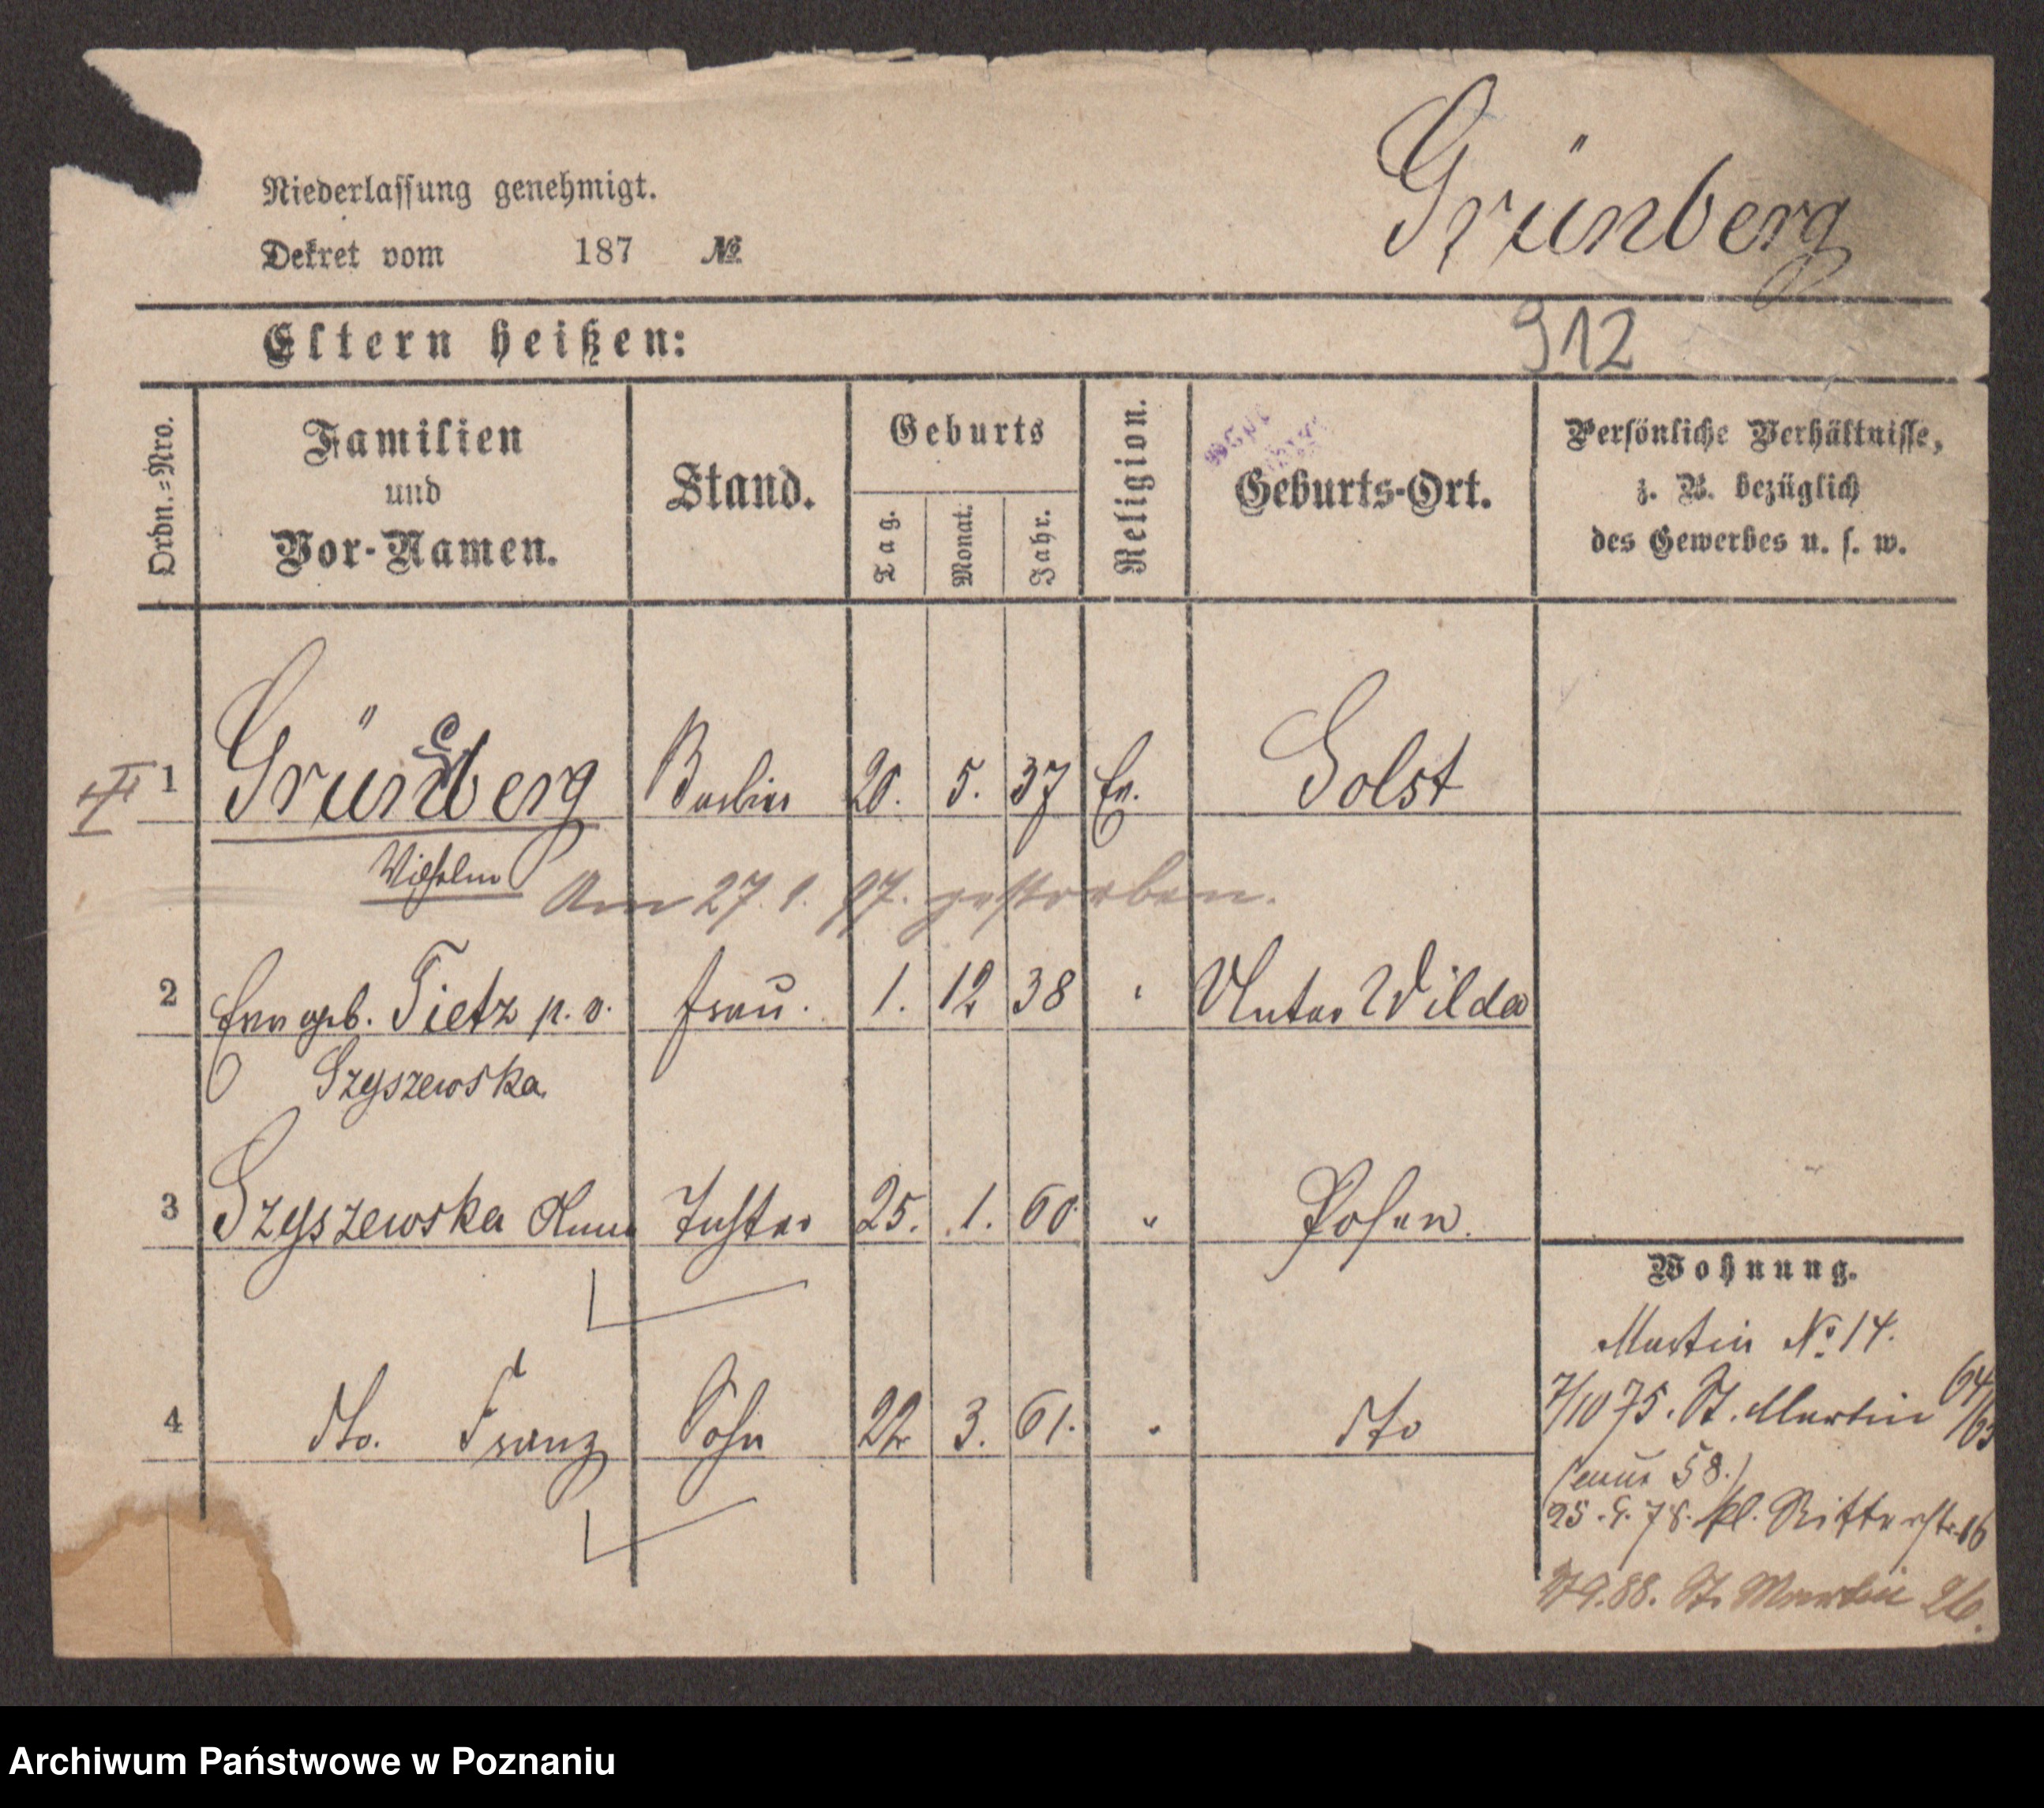 Grünberg
Niederlassung genehmigt.
Dekret vom 187 №
Eltern heißen:
912
Ordn.-Nro.
Familien
und
Vor-Namen.
Stand.
Geburts
Tag.
Monat.
Jahr.
Religion.
Geburts-Ort.
Persönliche Verhältnisse,
z. B. bezüglich
des Gewerbes u. s. w.
1 Grünberg 20. 5. 37 Ev. Golst
Wilhelm
Am 27. 97. gestorben.
2 geb. Tietz p. v. Frau. 1. 12 38 " Unter Wilda
Szyszewska
3 Szyszewska Anna Tochter 25. 1. 60. " Posen.
4 dto. Franz Sohn 22 3. 61. " dto
Wohnung.
Martin No 14.
7/10 75. St. Martin 64/65
(neue 58.)
25. 9. 78. kl. Ritterstr. 16
9.88. St. Martin 26.
Archiwum Państwowe w Poznaniu